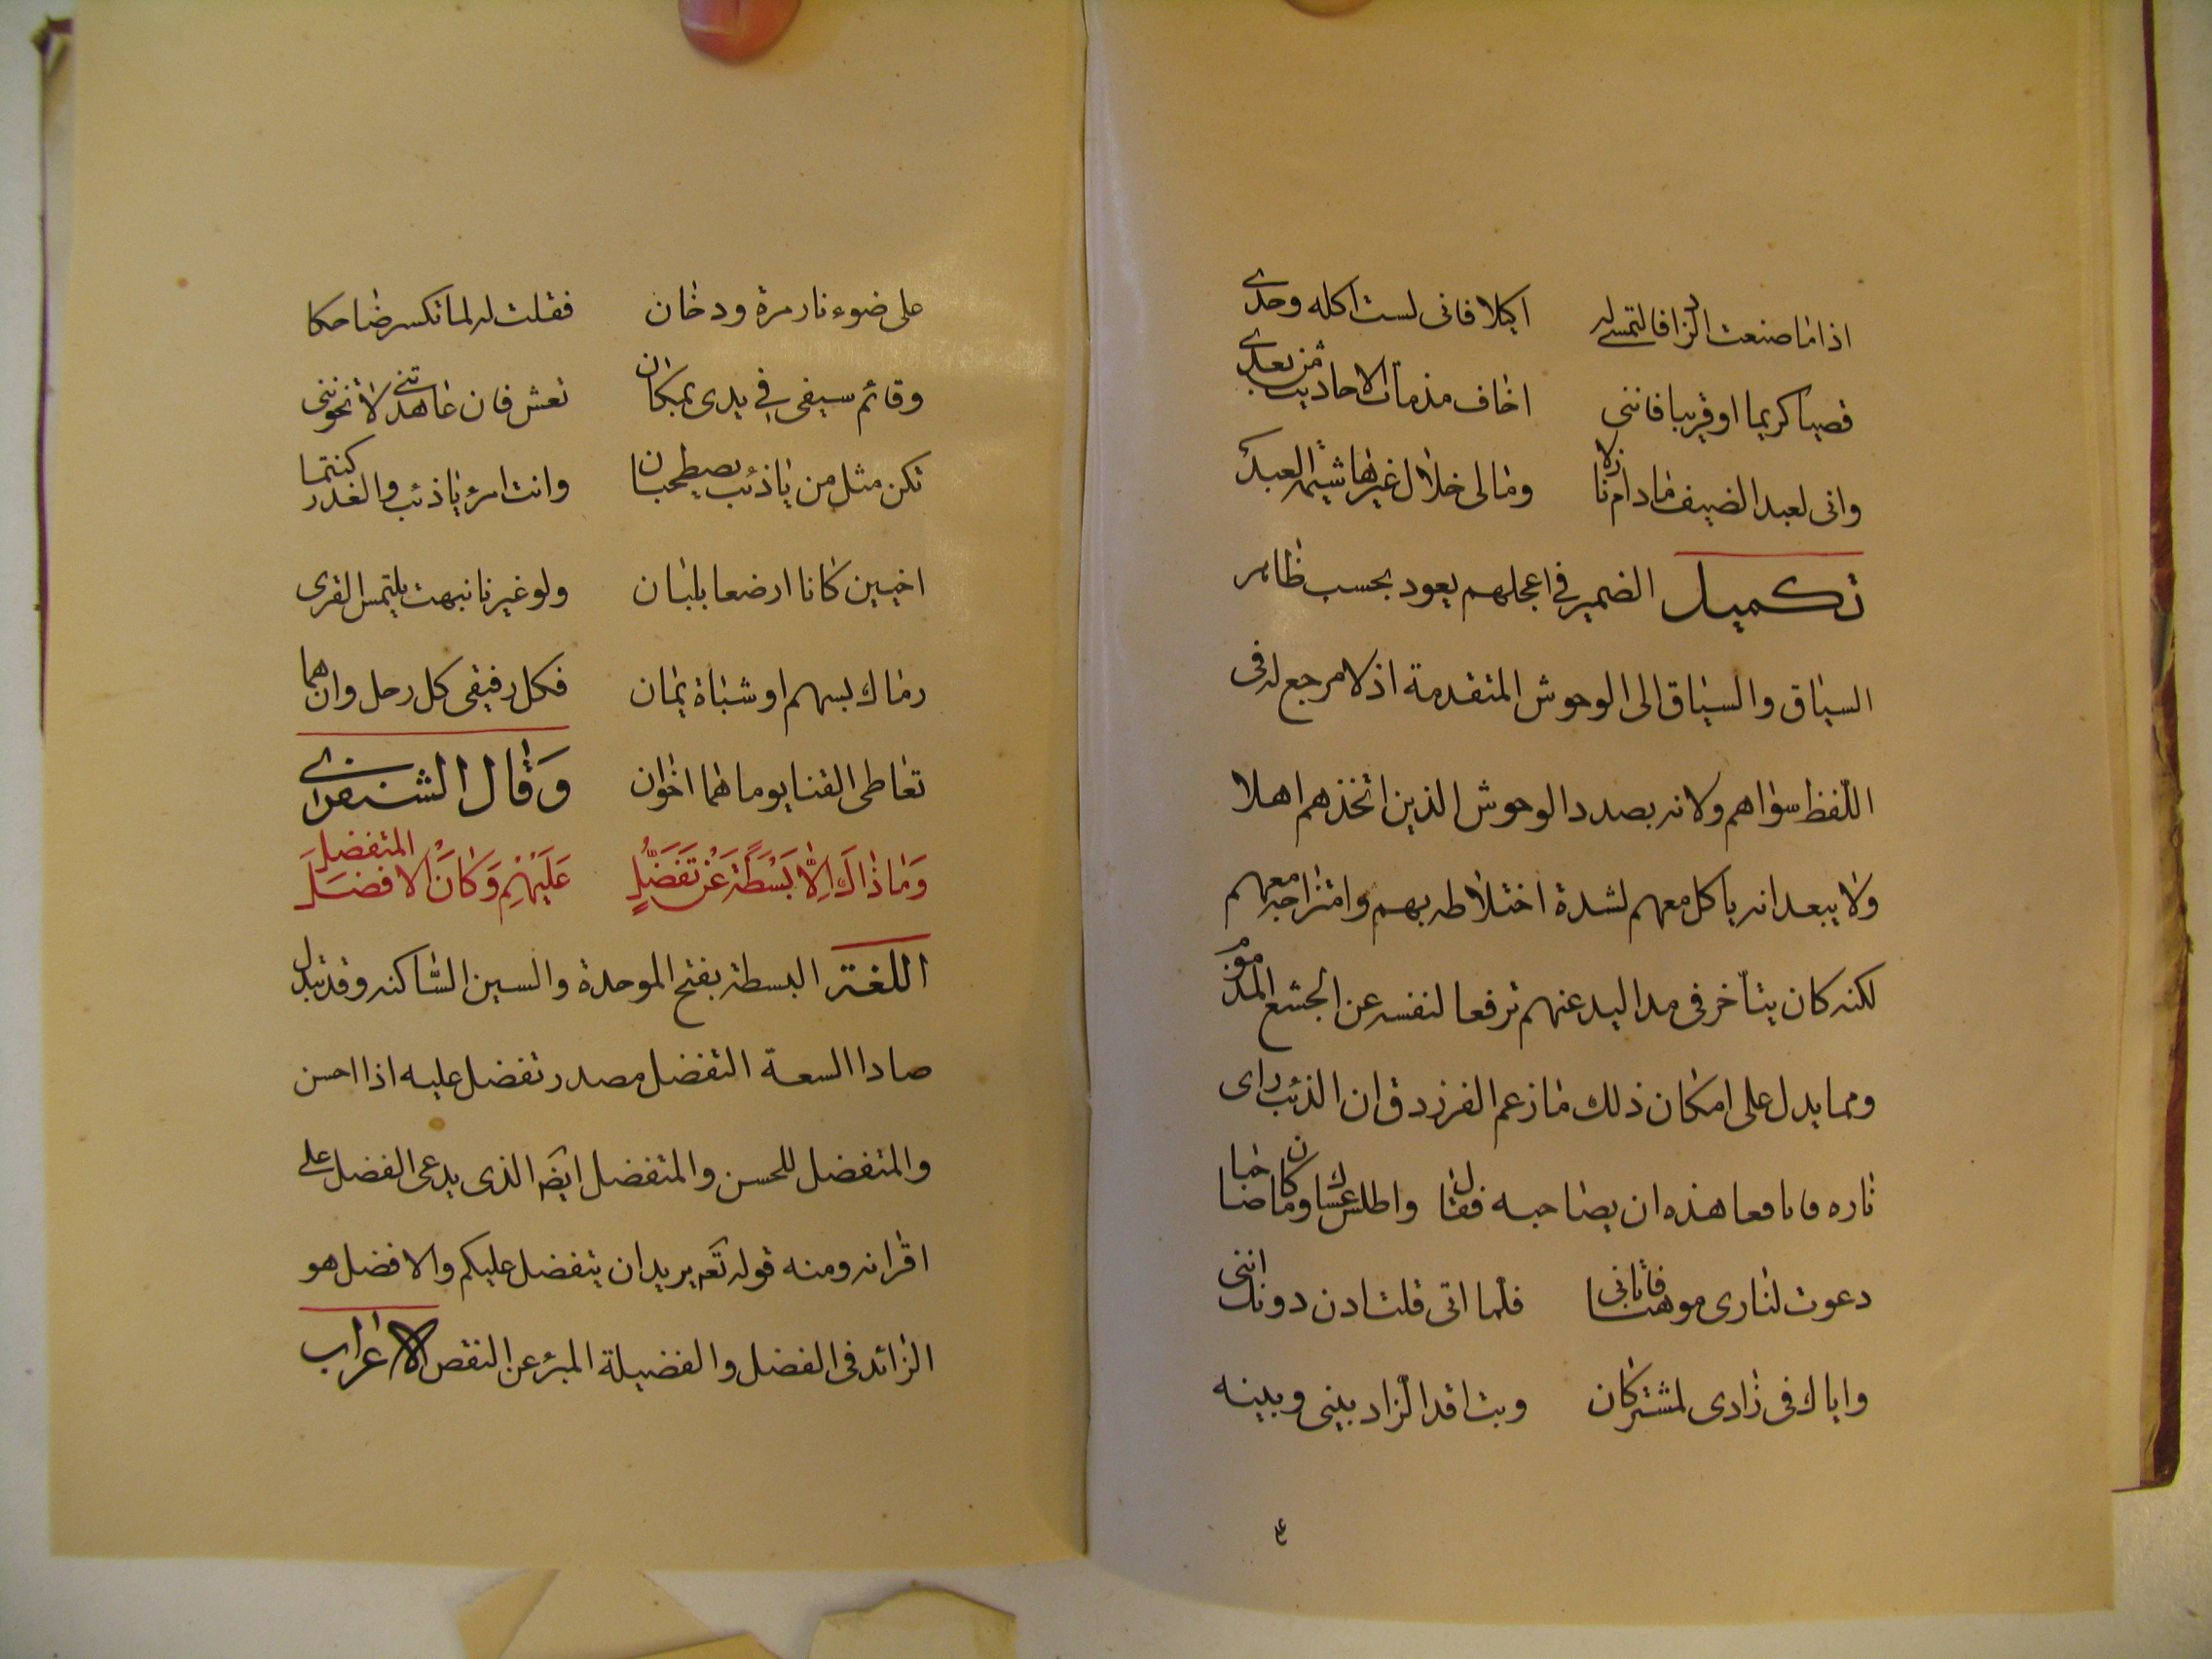 اذا ما صنعت الزاد فالتمسى له اكيلا فانى لست اكله وحدى
قصيا كريما او قريبا فاننى اخاف مذمات الاحاديث من بعدى
وانى لعبد الضيف ما دام نازلا وما لى خلال غيرها شيمة العبد
تكميل الضمير فى اعجلهم يعود بحسب ظاهر
السياق والسباق الى الوحوش المتقدمة اذ لا مرجع له فى
اللفظ سواهم ولانه بصدد الوحوش الذين اتخذهم اهلا
ولا يبعد انه ياكل معهم لشدة اختلاطه بهم وامتزاجه معهم
لكنه كان يتأخر فى مد اليد عنهم ترفعا لنفسه عن الجشع المذموم
ومما يدل على امكان ذلك ما زعم الفرزدق ان الذئب راى
ناره هذه ان يصاحبه فقال واطلس عسال وما كان صاحبا
دعوت لنارى موهنا فاتانى فلما اتى قلت ادن دونك اننى
واياك فى زادى لمشتركان وبت اقد الزاد بينى وبينه
على ضوء نار مرة ودخان فقلت له لما تكسر ضاحكا
وقائم سيفى فى يدى بمكان تعش فان عاهدتنى لا تخوننى
نكن مثل من ياذئب يصطحبان وانت امرؤ ياذئب والغدر كنتما
اخيين كانا ارضعا بلبان ولو غيرنا نبهت يلتمس القرى
رماك بسهم او شباة يمان فكل رفيقى كل رحل وان هما
تعاطى القنا يوما هما اخوان وَقال الشنفرى
وَمَا ذَاكَ اِلَّا بَسْطَةً عَنْ تَفَضُّلٍ عَلَيْهِمْ وَكَانَ الافضلَ المتفضل
اللغة البسطة بفتح الموحدة والسين الساكنه وقد تبدل
صادا السعة التفضل مصدر تفضل عليه اذا احسن
والمتفضل للحسن والمتفضل ايضه الذى يدعى الفضل على
اقرانه ومنه قوله تعه يريد ان يتفضل عليكم والافضل هو
الزائد فى الفضل والفضيلة المبرؤ عن النقص الاعراب